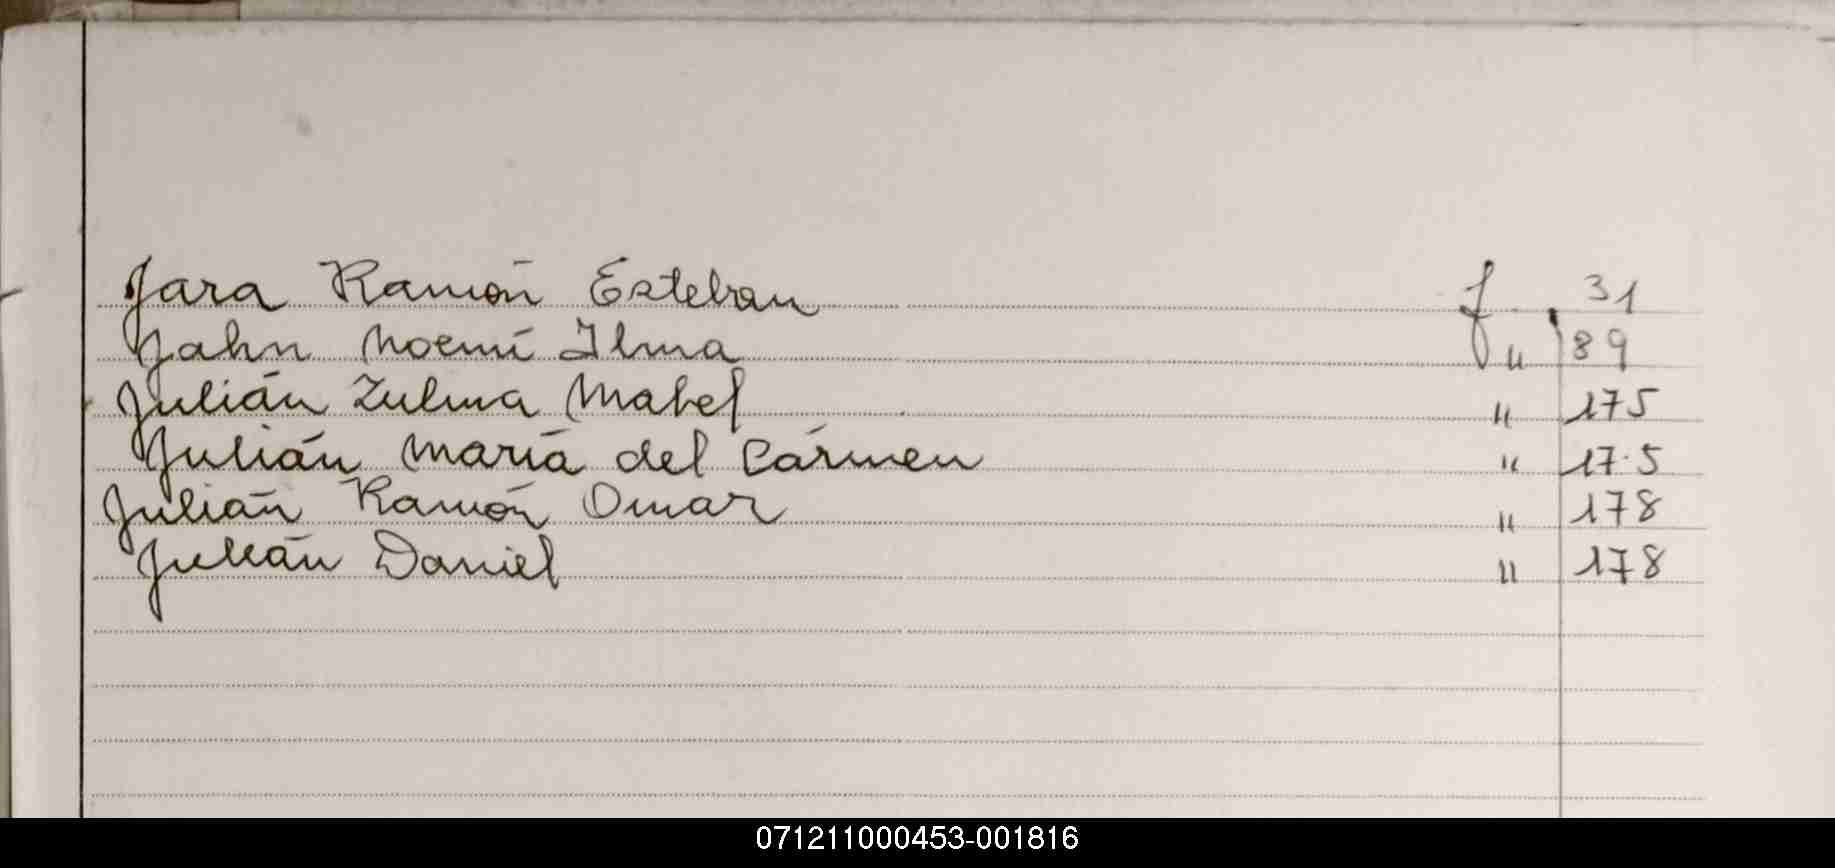 Jara Ramón Esteban f 31
Jahn Noemí Ilma " 89
Julián Zulma Mabel " 175
Julián María del Cármen " 175
Julián Ramón Omar " 178
Julián Daniel " 178
071211000453-001816